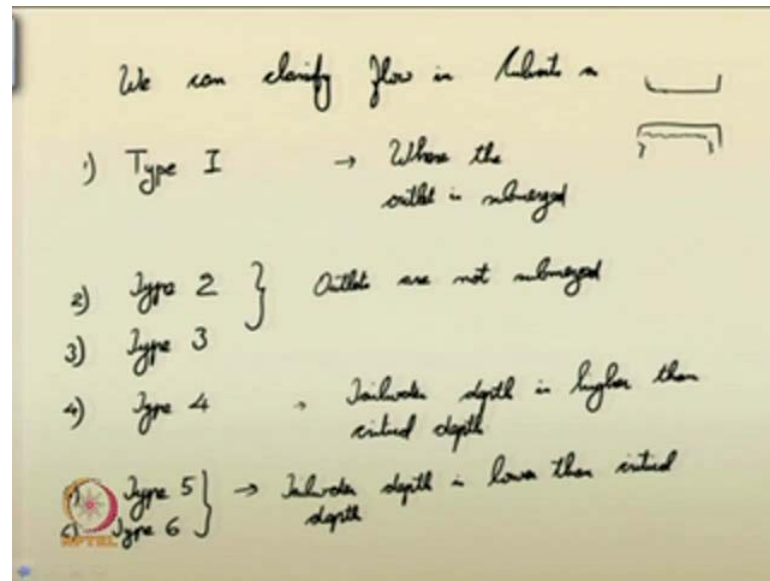 We can classify flow in Culverts as
1) Type I → Where the
outlet is submerged
2) Type 2 } Outlets are not submerged
3) Type 3
4) Type 4 → Tailwater depth is higher than
critical depth
Type 5 } → Tailwater depth is lower than critical
6) Type 6 depth
NPTEL